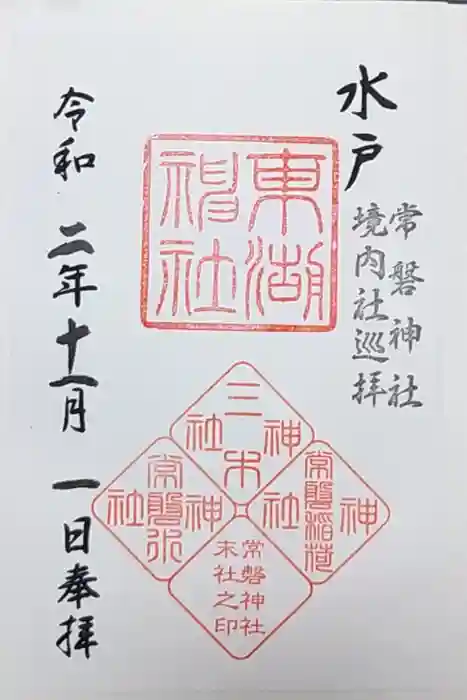 水戸
常磐神社
境内社巡拝
東湖神社
三木神社
常磐稲荷神社
常磐水神社
常磐神社
末社之印
令和二年十一月一日奉拝